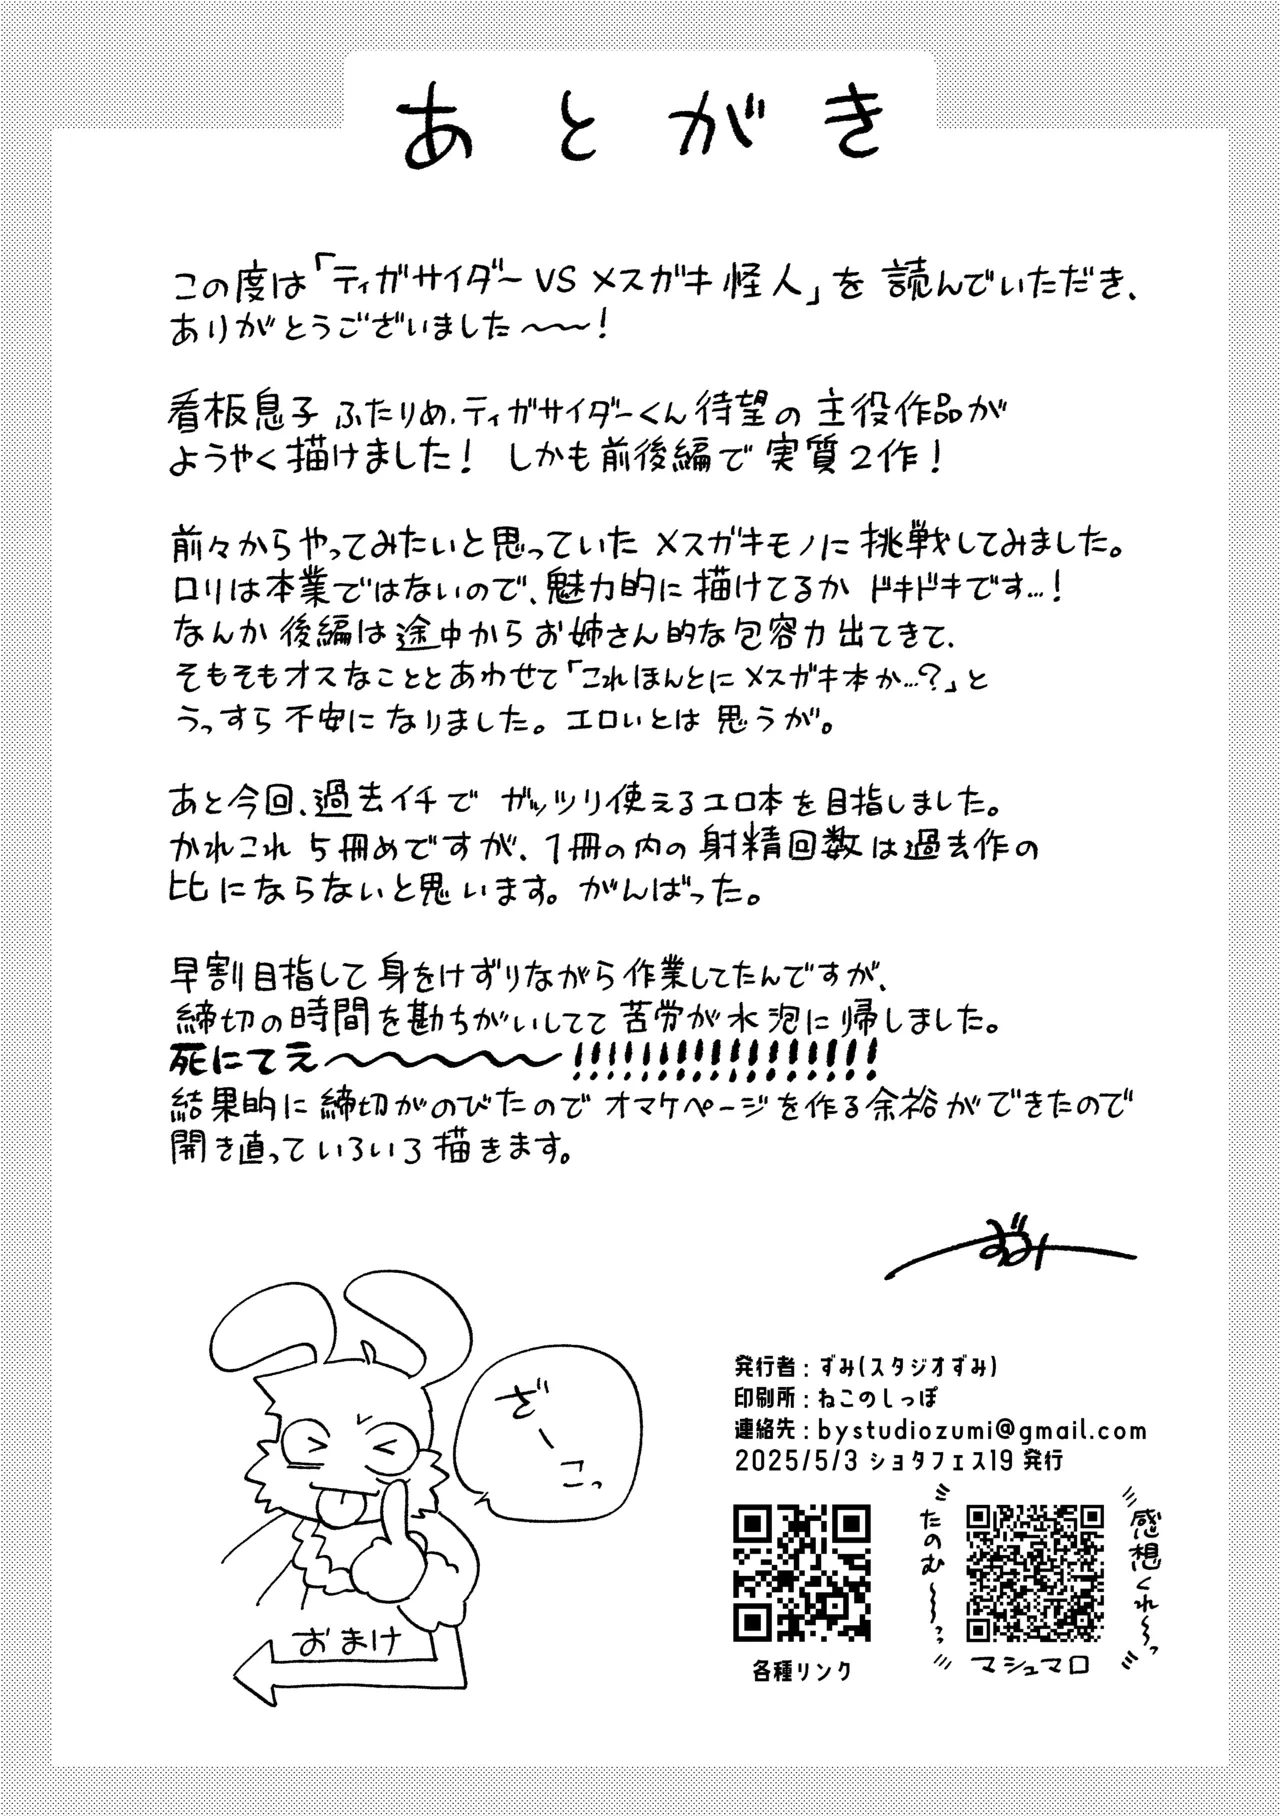 あとがき
この度は「ティガサイダーVSメスガキ怪人」を読んでいただき、
ありがとうございました〜〜!
看板息子ふたりめ、ティガサイダーくん待望の主役作品が
ようやく描けました! しかも前後編で実質2作!
前々からやってみたいと思っていたメスガキモノに挑戦してみました。
ロリは本業ではないので、魅力的に描けてるかドキドキです…!
なんか後編は途中からお姉さん的な包容力出てきて、
そもそもオスなこととあわせて「これほんとにメスガキ本か…?」と
うっすら不安になりました。エロいとは思うが。
あと今回、過去イチでガッツリ使えるエロ本を目指しました。
かれこれ5冊めですが、1冊の内の射精回数は過去作の
比にならないと思います。がんばった。
早割目指して身をけずりながら作業してたんですが、
締切の時間を勘ちがいしてて苦労が水泡に帰しました。
死にてえ〜〜〜〜〜!!!!!!!!!!!!!!!!!!
結果的に締切がのびたのでオマケページを作る余裕ができたので
開き直っていろいろ描きます。
ずみ
ざーこっ
おまけ
発行者:ずみ(スタジオずみ)
印刷所:ねこのしっぽ
連絡先:bystudiozumi@gmail.com
2025/5/3 ショタフェス19 発行
各種リンク
感想くれ〜っ
たのむ〜〜っ
マシュマロ